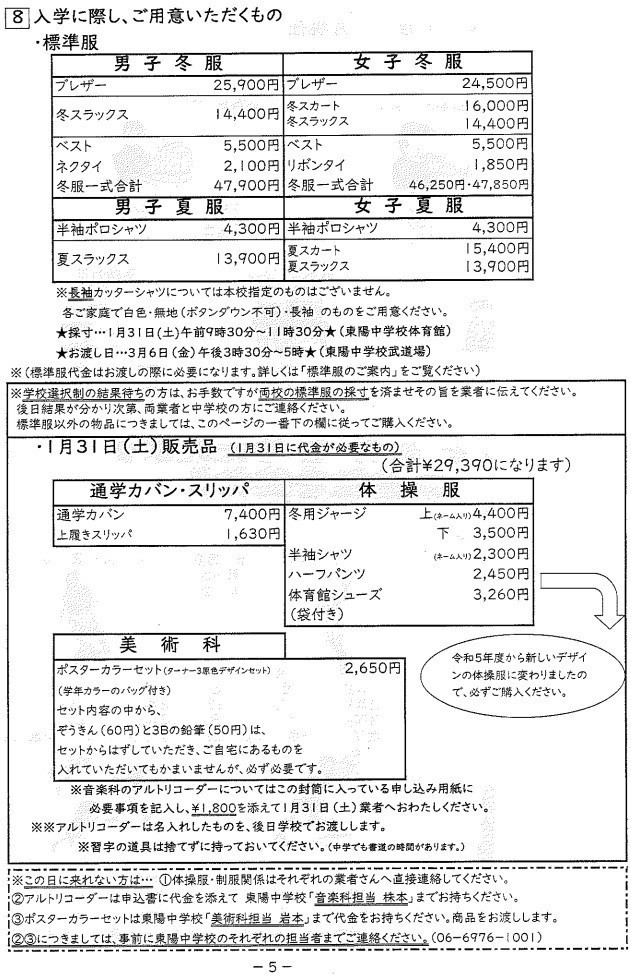 8 入学に際し、ご用意いただくもの
・標準服
男子冬服 女子冬服
ブレザー 25,900円 ブレザー 24,500円
冬スラックス 14,400円 冬スカート 16,000円
冬スラックス 14,400円
ベスト 5,500円 ベスト 5,500円
ネクタイ 2,100円 リボンタイ 1,850円
冬服一式合計 47,900円 冬服一式合計 46,250円・47,850円
男子夏服 女子夏服
半袖ポロシャツ 4,300円 半袖ポロシャツ 4,300円
夏スラックス 13,900円 夏スカート 15,400円
夏スラックス 13,900円
※長袖カッターシャツについては本校指定のものはございません。
各ご家庭で白色・無地(ボタンダウン不可)・長袖 のものをご用意ください。
★採寸…1月31日(土)午前9時30分～11時30分★(東陽中学校体育館)
★お渡し日…3月6日(金)午後3時30分～5時★(東陽中学校武道場)
※(標準服代金はお渡しの際に必要になります。詳しくは「標準服のご案内」をご覧ください)
※学校選択制の結果待ちの方は、お手数ですが両校の標準服の採寸を済ませその旨を業者に伝えてください。
後日結果が分かり次第、両業者と中学校の方にご連絡ください。
標準服以外の物品につきましては、このページの一番下の欄に従ってご購入ください。
・1月31日(土)販売品 (1月31日に代金が必要なもの)
(合計¥29,390になります)
通学カバン・スリッパ 体操服
通学カバン 7,400円 冬用ジャージ 上(ネーム入り)4,400円
上履きスリッパ 1,630円 下 3,500円
半袖シャツ (ネーム入り)2,300円
ハーフパンツ 2,450円
体育館シューズ 3,260円
(袋付き)
美術科
ポスターカラーセット(ターナー3原色デザインセット) 2,650円
(学年カラーのバッグ付き)
セット内容の中から、
ぞうきん(60円)と3Bの鉛筆(50円)は、
セットからはずしていただき、ご自宅にあるものを
入れていただいてもかまいませんが、必ず必要です。
令和5年度から新しいデザイ
ンの体操服に変わりましたの
で、必ずご購入ください。
※音楽科のアルトリコーダーについてはこの封筒に入っている申し込み用紙に
必要事項を記入し、¥1,800を添えて1月31日(土)業者へおわたしください。
※※アルトリコーダーは名入れしたものを、後日学校でお渡しします。
※習字の道具は捨てずに持っておいてください。(中学でも書道の時間があります。)
※この日に来れない方は… ①体操服・制服関係はそれぞれの業者さんへ直接連絡してください。
②アルトリコーダーは申込書に代金を添えて 東陽中学校「音楽科担当 株本」までお持ちください。
③ポスターカラーセットは東陽中学校「美術科担当 岩本」まで代金をお持ちください。商品をお渡しします。
②③につきましては、事前に東陽中学校のそれぞれの担当者までご連絡ください。(06-6976-1001)
－5－